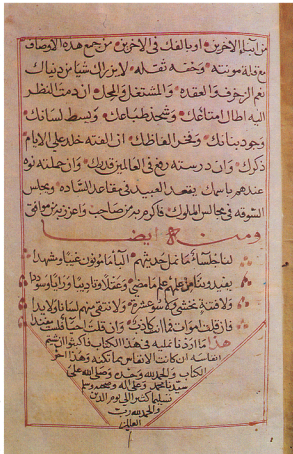 من انباء الاخرين او بالفك في الاخرين من جمع هذه الاوصاف
مع قلة مونته وخفة ثقله لا يزراك شيا من دنياك
نعم الزخرف والعقده والمشتغل والمجل ان دمت النظر
اليه اطال امتاعك وشحذ طباعك وبسط لسانك
وجود بنانك وفخر الفاظك ان الفته خلد على الايام
ذكرك وان درسته رفع في العالمين قدرك وان حملته نوه
عندهم باسمك يقعد العبيد في مقاعد الساده ويجالس
السوقه في مجالس الملوك فاكرم به من صاحب واعزز به من موافق
ومنه ايضا
لنا جلساء ما نمل حديثهم البا مامونون غيبا ومشهدا
يفيدوننا من علمهم علم ما مضى وعقلا وتاديبا ورايا وسوددا
ولا فتنة تخشى ولا سو عشرة ولا نتقى منهم لسانا ولا يدا
فان قلت اموات فما انت كاذب وان قلت احيا فلست مفندا
هذا ما اردنا نمليه في هذا الكتاب فاكبوا الشيم
انفاسه ان كانت الانفاس بما تكنه وهذا اخر
الكتاب والحمد لله وحده وصلى الله على
سيدنا محمد وعلى اله وصحبه وسلم
تسليما كثيرا الى يوم الدين
والحمد لله رب
العالمين